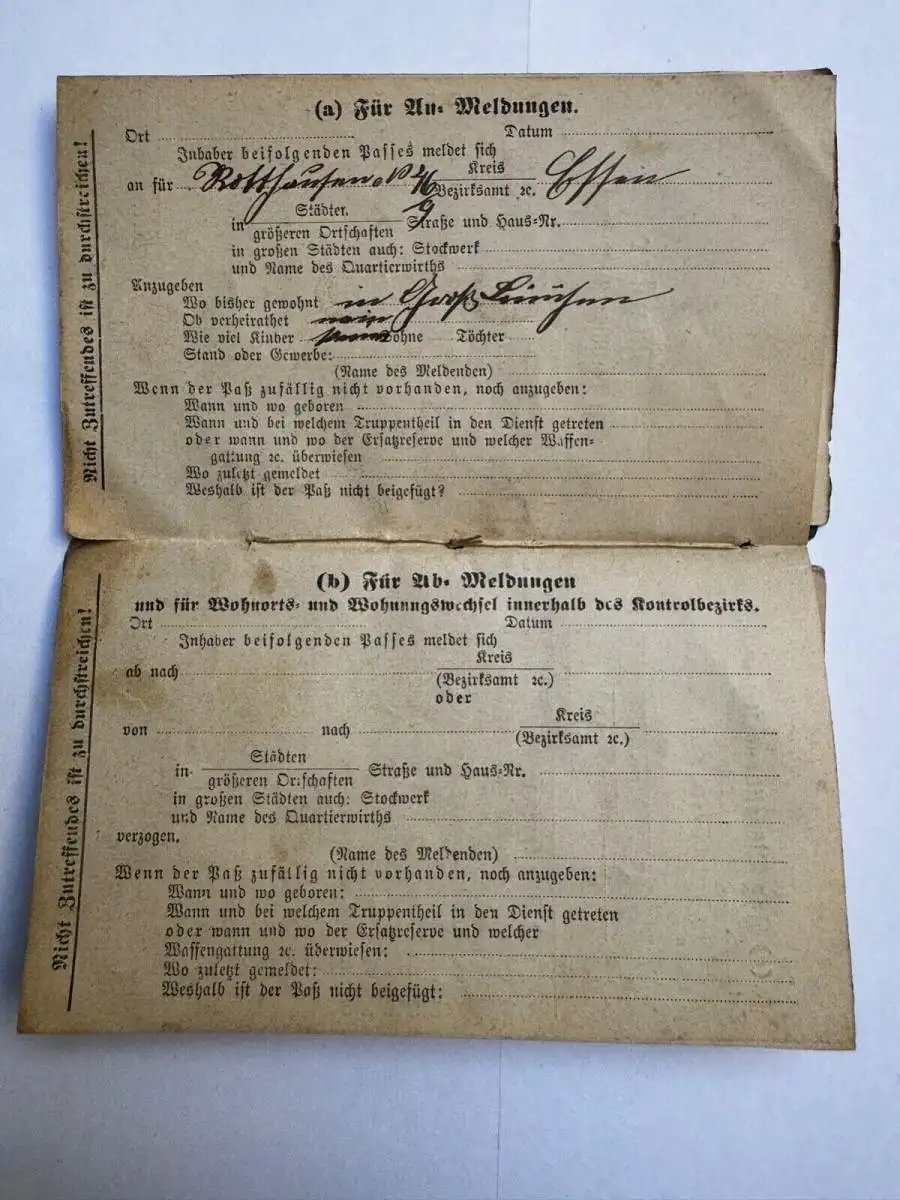 Nicht Zutreffendes ist zu durchstreichen!
(a) Für An- Meldungen.
Ort Datum
Inhaber beifolgenden Passes meldet sich
an für Rotthausen Kreis Essen
Bezirksamt ꝛc.
Städten
in Straße und Haus-Nr.
größeren Ortschaften
in großen Städten auch: Stockwerk
und Name des Quartierwirths
Anzugeben
Wo bisher gewohnt in Groß
Ob verheirathet nein
Wie viel Kinder Söhne Töchter
Stand oder Gewerbe:
(Name des Meldenden)
Wenn der Paß zufällig nicht vorhanden, noch anzugeben:
Wann und wo geboren
Wann und bei welchem Truppentheil in den Dienst getreten
oder wann und wo der Ersatzreserve und welcher Waffen-
gattung ꝛc. überwiesen
Wo zuletzt gemeldet
Weshalb ist der Paß nicht beigefügt?
Nicht Zutreffendes ist zu durchstreichen!
(b) Für Ab- Meldungen
und für Wohnorts- und Wohnungswechsel innerhalb des Kontrolbezirks.
Ort Datum
Inhaber beifolgenden Passes meldet sich
Kreis
ab nach
(Bezirksamt ꝛc.)
oder
Kreis
von nach
(Bezirksamt ꝛc.)
Städten
in Straße und Haus-Nr.
größeren Ortschaften
in großen Städten auch: Stockwerk
und Name des Quartierwirths
verzogen.
(Name des Meldenden)
Wenn der Paß zufällig nicht vorhanden, noch anzugeben:
Wann und wo geboren:
Wann und bei welchem Truppentheil in den Dienst getreten
oder wann und wo der Ersatzreserve und welcher
Waffengattung ꝛc. überwiesen:
Wo zuletzt gemeldet:
Weshalb ist der Paß nicht beigefügt: